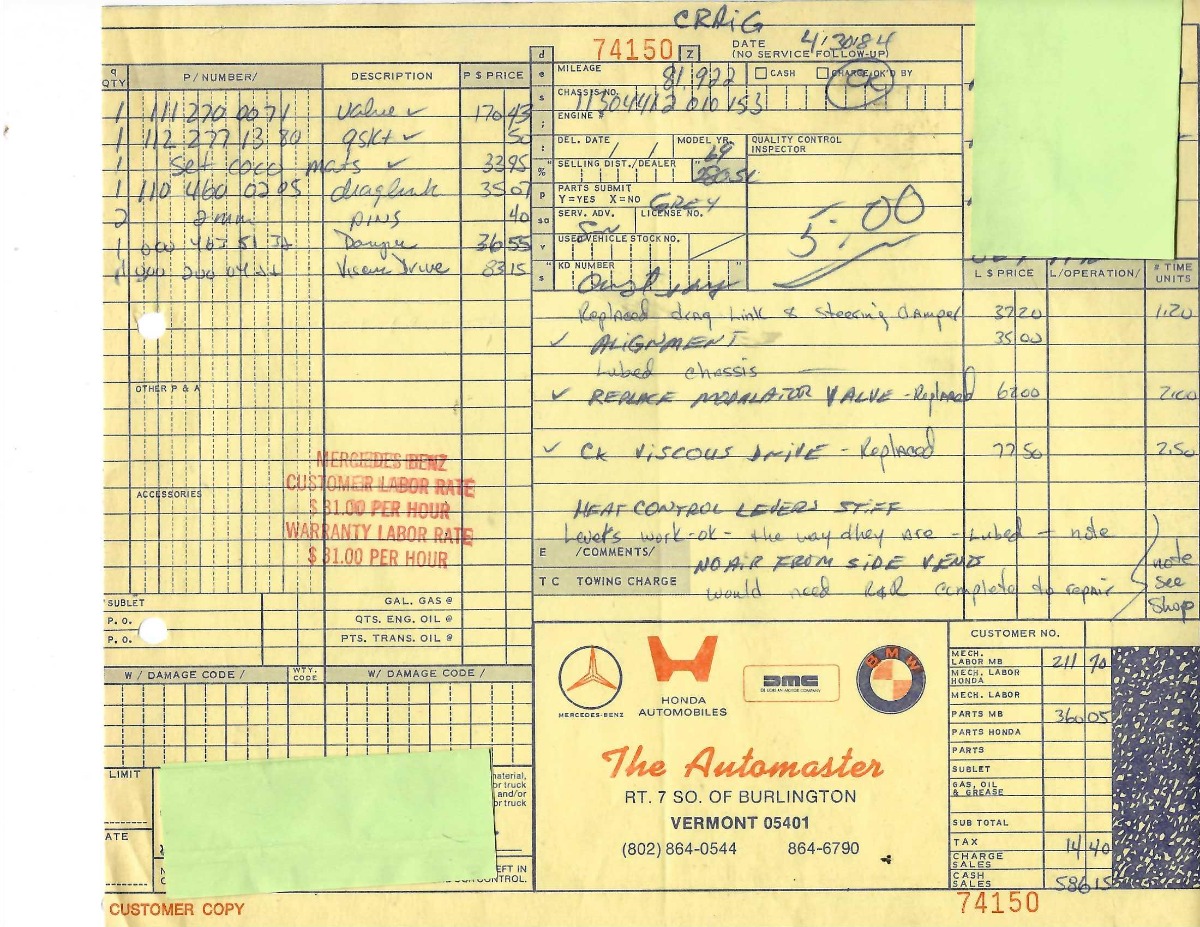 CRAIG
74150
DATE 4/30/84
(NO SERVICE FOLLOW-UP)
QTY. P/NUMBER/ DESCRIPTION P $ PRICE
1 111 270 00 71 Valve ✓ 170 43
1 112 277 13 80 gskt ✓ 50
1 Set coco mats ✓ 33 95
1 110 460 02 05 draglink 35 07
2 2 mm PINS 40
1 000 463 51 32 Damper 36 55
1 000 200 04 22 Viscous Drive 83 15
OTHER P & A
ACCESSORIES
MERCEDES BENZ
CUSTOMER LABOR RATE
$ 31.00 PER HOUR
WARRANTY LABOR RATE
$ 31.00 PER HOUR
SUBLET
P. O.
P. O.
GAL. GAS @
QTS. ENG. OIL @
PTS. TRANS. OIL @
W / DAMAGE CODE / WTY. CODE W / DAMAGE CODE /
LIMIT
ATE
naterial,
or truck
and/or
or truck
EFT IN
CONTROL.
CUSTOMER COPY
MILEAGE 81,922
CASH CHARGE OK'D BY CK
CHASSIS NO. 11304412 010 153
ENGINE #
DEL. DATE / / MODEL YR. 69
QUALITY CONTROL
INSPECTOR
SELLING DIST./DEALER 280SL
PARTS SUBMIT
Y=YES X=NO GREY
SERV. ADV. LICENSE NO.
5.00
USED VEHICLE STOCK NO.
KD NUMBER
L $ PRICE L/OPERATION/ # TIME UNITS
Replaced drag link & Steering damper 37 20 1.20
✓ ALIGNMENT 35 00
Lubed chassis
✓ REPLACE MODALATOR VALVE - Replaced 62 00 2.00
✓ CK VISCOUS DRIVE - Replaced 77 50 2.50
HEAT CONTROL LEVERS STIFF
Levers work - ok - the way they are - Lubed - note
E /COMMENTS/ NO AIR FROM SIDE VENTS
T C TOWING CHARGE would need R&R complete to repair
note
see
Shop
MERCEDES-BENZ
HONDA
AUTOMOBILES
DMC
DE LOREAN MOTOR COMPANY
BMW
The Automaster
RT. 7 SO. OF BURLINGTON
VERMONT 05401
(802) 864-0544 864-6790
CUSTOMER NO.
MECH. LABOR MB 211 70
MECH. LABOR HONDA
MECH. LABOR
PARTS MB 360 05
PARTS HONDA
PARTS
SUBLET
GAS, OIL & GREASE
SUB TOTAL
TAX 14 40
CHARGE SALES
CASH SALES 586 15
74150